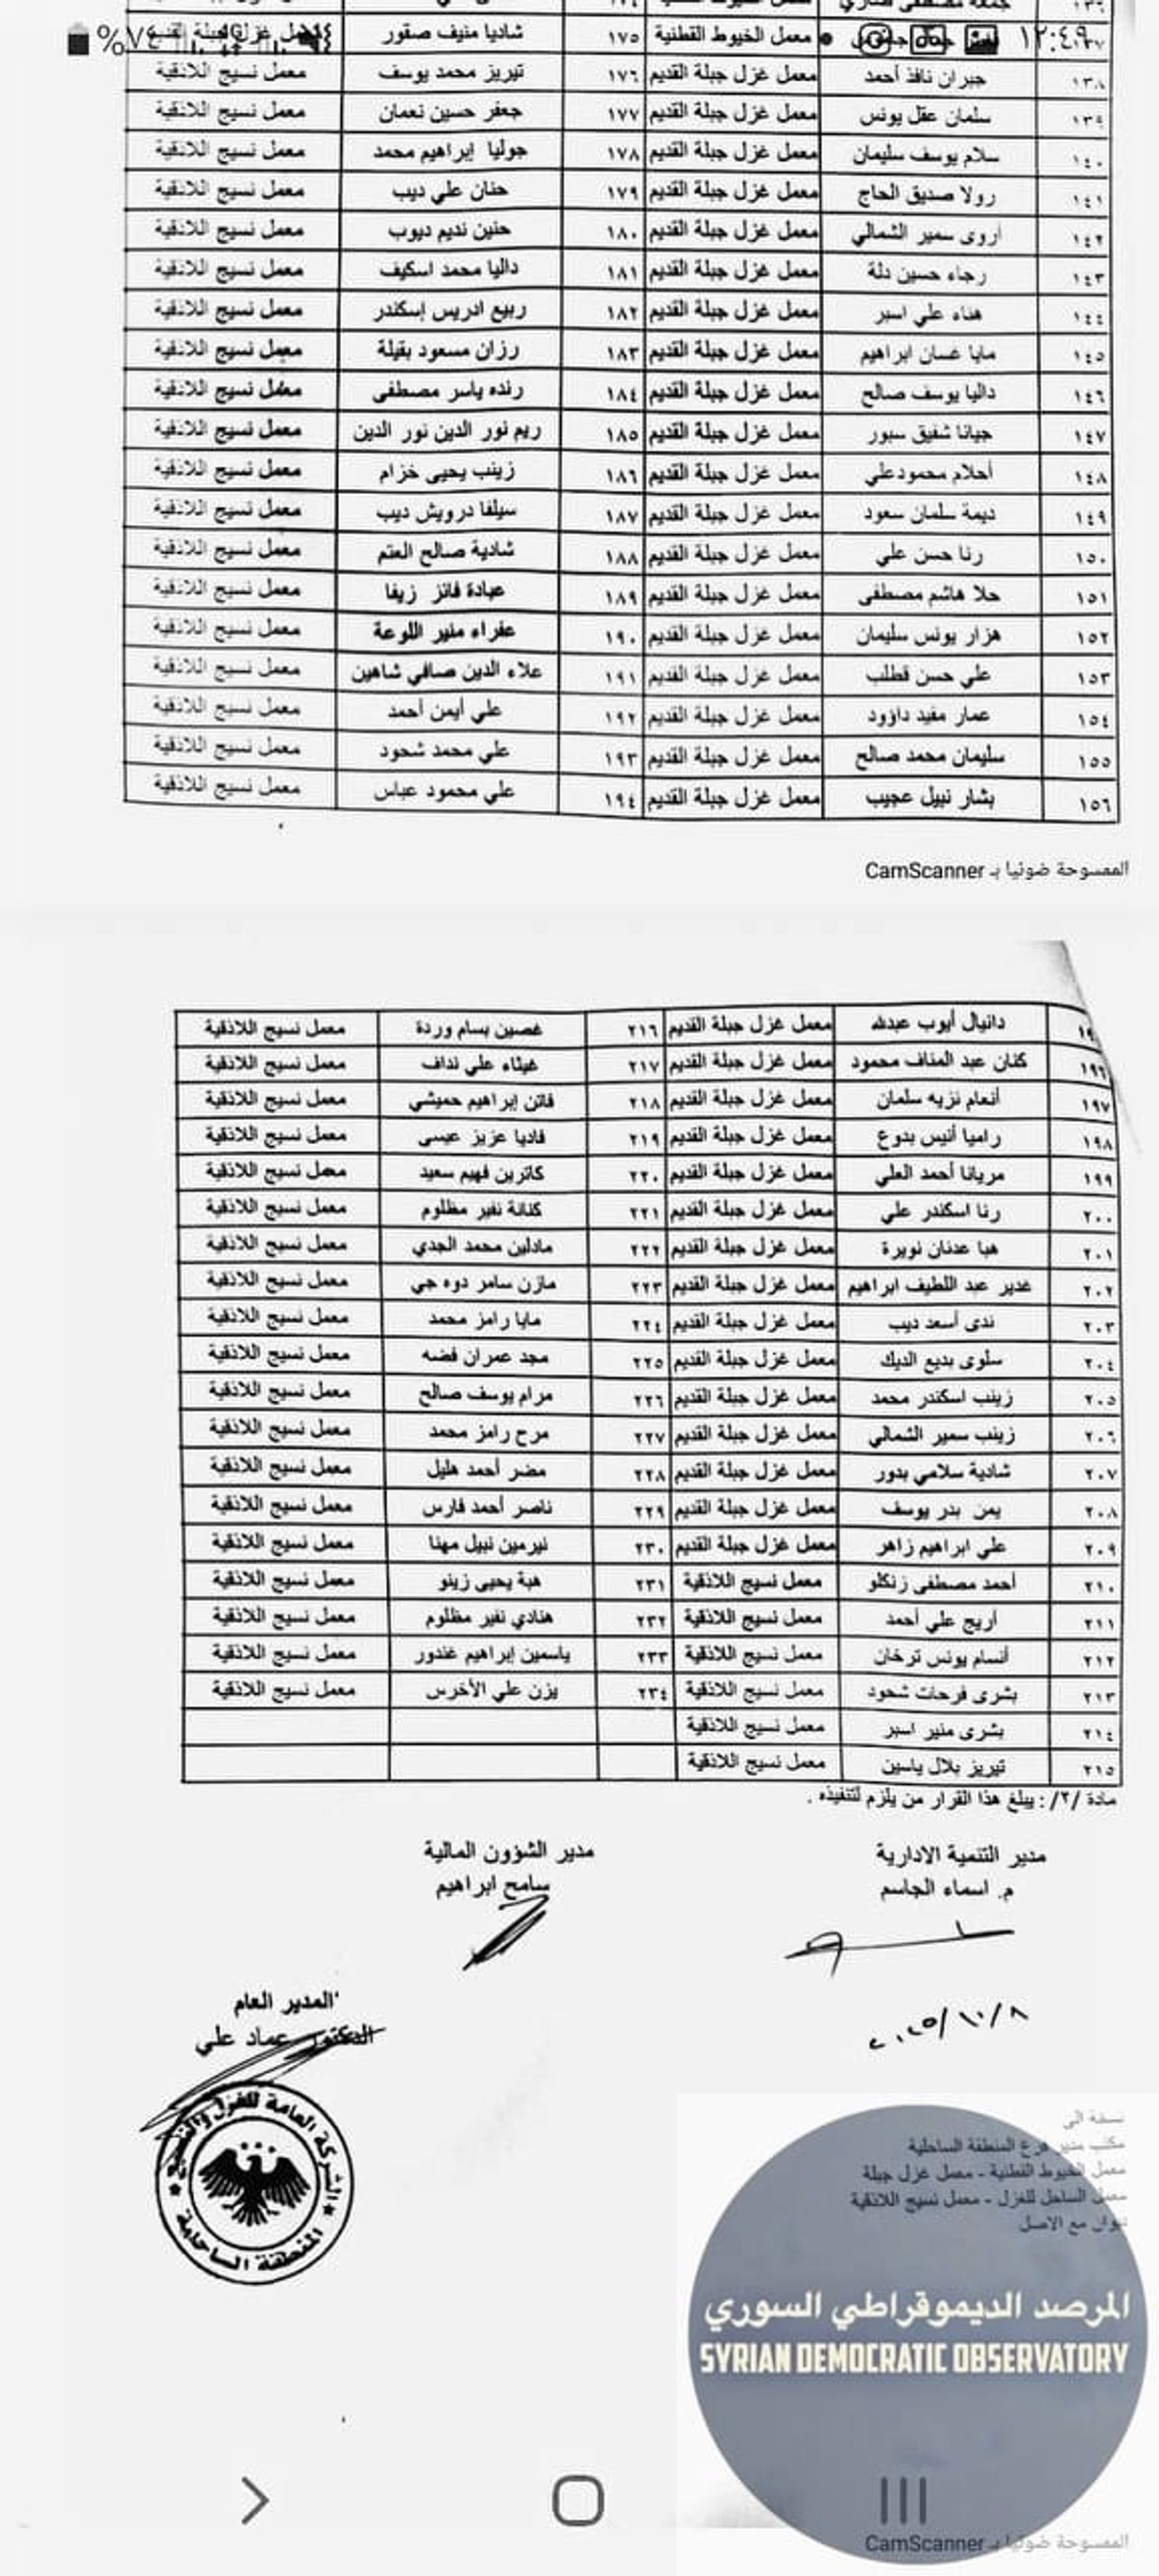 ١٢:٤٩
%٧٤
١٣٦ جمعة مصطفى
١٣٧ معمل الخيوط القطنية ١٧٥ شاديا منيف صقور معمل غزل جبلة
١٣٨ جبران نافذ أحمد معمل غزل جبلة القديم ١٧٦ تيريز محمد يوسف معمل نسيج اللاذقية
١٣٩ سلمان عقل يونس معمل غزل جبلة القديم ١٧٧ جعفر حسين نعمان معمل نسيج اللاذقية
١٤٠ سلام يوسف سليمان معمل غزل جبلة القديم ١٧٨ جوليا إبراهيم محمد معمل نسيج اللاذقية
١٤١ رولا صديق الحاج معمل غزل جبلة القديم ١٧٩ حنان علي ديب معمل نسيج اللاذقية
١٤٢ أروى سمير الشمالي معمل غزل جبلة القديم ١٨٠ حنين نديم ديوب معمل نسيج اللاذقية
١٤٣ رجاء حسين دلة معمل غزل جبلة القديم ١٨١ داليا محمد اسكيف معمل نسيج اللاذقية
١٤٤ هناء علي اسبر معمل غزل جبلة القديم ١٨٢ ربيع ادريس إسكندر معمل نسيج اللاذقية
١٤٥ مايا غسان ابراهيم معمل غزل جبلة القديم ١٨٣ رزان مسعود بقيلة معمل نسيج اللاذقية
١٤٦ داليا يوسف صالح معمل غزل جبلة القديم ١٨٤ رنده ياسر مصطفى معمل نسيج اللاذقية
١٤٧ جيانا شفيق سبور معمل غزل جبلة القديم ١٨٥ ريم نور الدين نور الدين معمل نسيج اللاذقية
١٤٨ أحلام محمودعلي معمل غزل جبلة القديم ١٨٦ زينب يحيى خزام معمل نسيج اللاذقية
١٤٩ ديمة سلمان سعود معمل غزل جبلة القديم ١٨٧ سيلفا درويش ديب معمل نسيج اللاذقية
١٥٠ رنا حسن علي معمل غزل جبلة القديم ١٨٨ شادية صالح العتم معمل نسيج اللاذقية
١٥١ حلا هاشم مصطفى معمل غزل جبلة القديم ١٨٩ عبادة فائز زيفا معمل نسيج اللاذقية
١٥٢ هزار يونس سليمان معمل غزل جبلة القديم ١٩٠ عفراء منير اللوعة معمل نسيج اللاذقية
١٥٣ علي حسن قطلب معمل غزل جبلة القديم ١٩١ علاء الدين صافي شاهين معمل نسيج اللاذقية
١٥٤ عمار مفيد داؤود معمل غزل جبلة القديم ١٩٢ علي أيمن أحمد معمل نسيج اللاذقية
١٥٥ سليمان محمد صالح معمل غزل جبلة القديم ١٩٣ علي محمد شحود معمل نسيج اللاذقية
١٥٦ بشار نبيل عجيب معمل غزل جبلة القديم ١٩٤ علي محمود عباس معمل نسيج اللاذقية
الممسوحة ضوئيا بـ CamScanner
دانيال أيوب عبدلله معمل غزل جبلة القديم ٢١٦ غصين بسام وردة معمل نسيج اللاذقية
١٩٦ كنان عبد المناف محمود معمل غزل جبلة القديم ٢١٧ غيثاء علي نداف معمل نسيج اللاذقية
١٩٧ أنعام نزيه سلمان معمل غزل جبلة القديم ٢١٨ فاتن إبراهيم حميشي معمل نسيج اللاذقية
١٩٨ راميا أنيس بدوع معمل غزل جبلة القديم ٢١٩ فاديا عزيز عيسى معمل نسيج اللاذقية
١٩٩ مريانا أحمد العلي معمل غزل جبلة القديم ٢٢٠ كاترين فهيم سعيد معمل نسيج اللاذقية
٢٠٠ رنا اسكندر علي معمل غزل جبلة القديم ٢٢١ كنانة نفير مظلوم معمل نسيج اللاذقية
٢٠١ هبا عدنان نويرة معمل غزل جبلة القديم ٢٢٢ مادلين محمد الجدي معمل نسيج اللاذقية
٢٠٢ غدير عبد اللطيف ابراهيم معمل غزل جبلة القديم ٢٢٣ مازن سامر دوه جي معمل نسيج اللاذقية
٢٠٣ ندى أسعد ديب معمل غزل جبلة القديم ٢٢٤ مايا رامز محمد معمل نسيج اللاذقية
٢٠٤ سلوى بديع الديك معمل غزل جبلة القديم ٢٢٥ مجد عمران فضه معمل نسيج اللاذقية
٢٠٥ زينب اسكندر محمد معمل غزل جبلة القديم ٢٢٦ مرام يوسف صالح معمل نسيج اللاذقية
٢٠٦ زينب سمير الشمالي معمل غزل جبلة القديم ٢٢٧ مرح رامز محمد معمل نسيج اللاذقية
٢٠٧ شادية سلامي بدور معمل غزل جبلة القديم ٢٢٨ مضر أحمد هليل معمل نسيج اللاذقية
٢٠٨ يمن بدر يوسف معمل غزل جبلة القديم ٢٢٩ ناصر أحمد فارس معمل نسيج اللاذقية
٢٠٩ علي ابراهيم زاهر معمل غزل جبلة القديم ٢٣٠ نيرمين نبيل مهنا معمل نسيج اللاذقية
٢١٠ أحمد مصطفى زنكلو معمل نسيج اللاذقية ٢٣١ هبة يحيى زينو معمل نسيج اللاذقية
٢١١ أريج علي أحمد معمل نسيج اللاذقية ٢٣٢ هنادي نفير مظلوم معمل نسيج اللاذقية
٢١٢ أنسام يونس ترخان معمل نسيج اللاذقية ٢٣٣ ياسمين إبراهيم غندور معمل نسيج اللاذقية
٢١٣ بشرى فرحات شحود معمل نسيج اللاذقية ٢٣٤ يزن علي الأخرس معمل نسيج اللاذقية
٢١٤ بشرى منير اسبر معمل نسيج اللاذقية
٢١٥ تيريز بلال ياسين معمل نسيج اللاذقية
مادة /٢/: يبلغ هذا القرار من يلزم لتنفيذه .
مدير التنمية الادارية مدير الشؤون المالية
م. اسماء الجاسم سامح ابراهيم
المدير العام
الدكتور عماد علي
٢٠٢٥/١٠/٨
الشركة العامة للغزل والنسيج
المنطقة الساحلية
نسخة الى
مكتب مدير فرع المنطقة الساحلية
معمل الخيوط القطنية - معمل غزل جبلة
معمل الساحل للغزل - معمل نسيج اللاذقية
ديوان مع الاصل
المرصد الديموقراطي السوري
SYRIAN DEMOCRATIC OBSERVATORY
الممسوحة ضوئيا بـ CamScanner